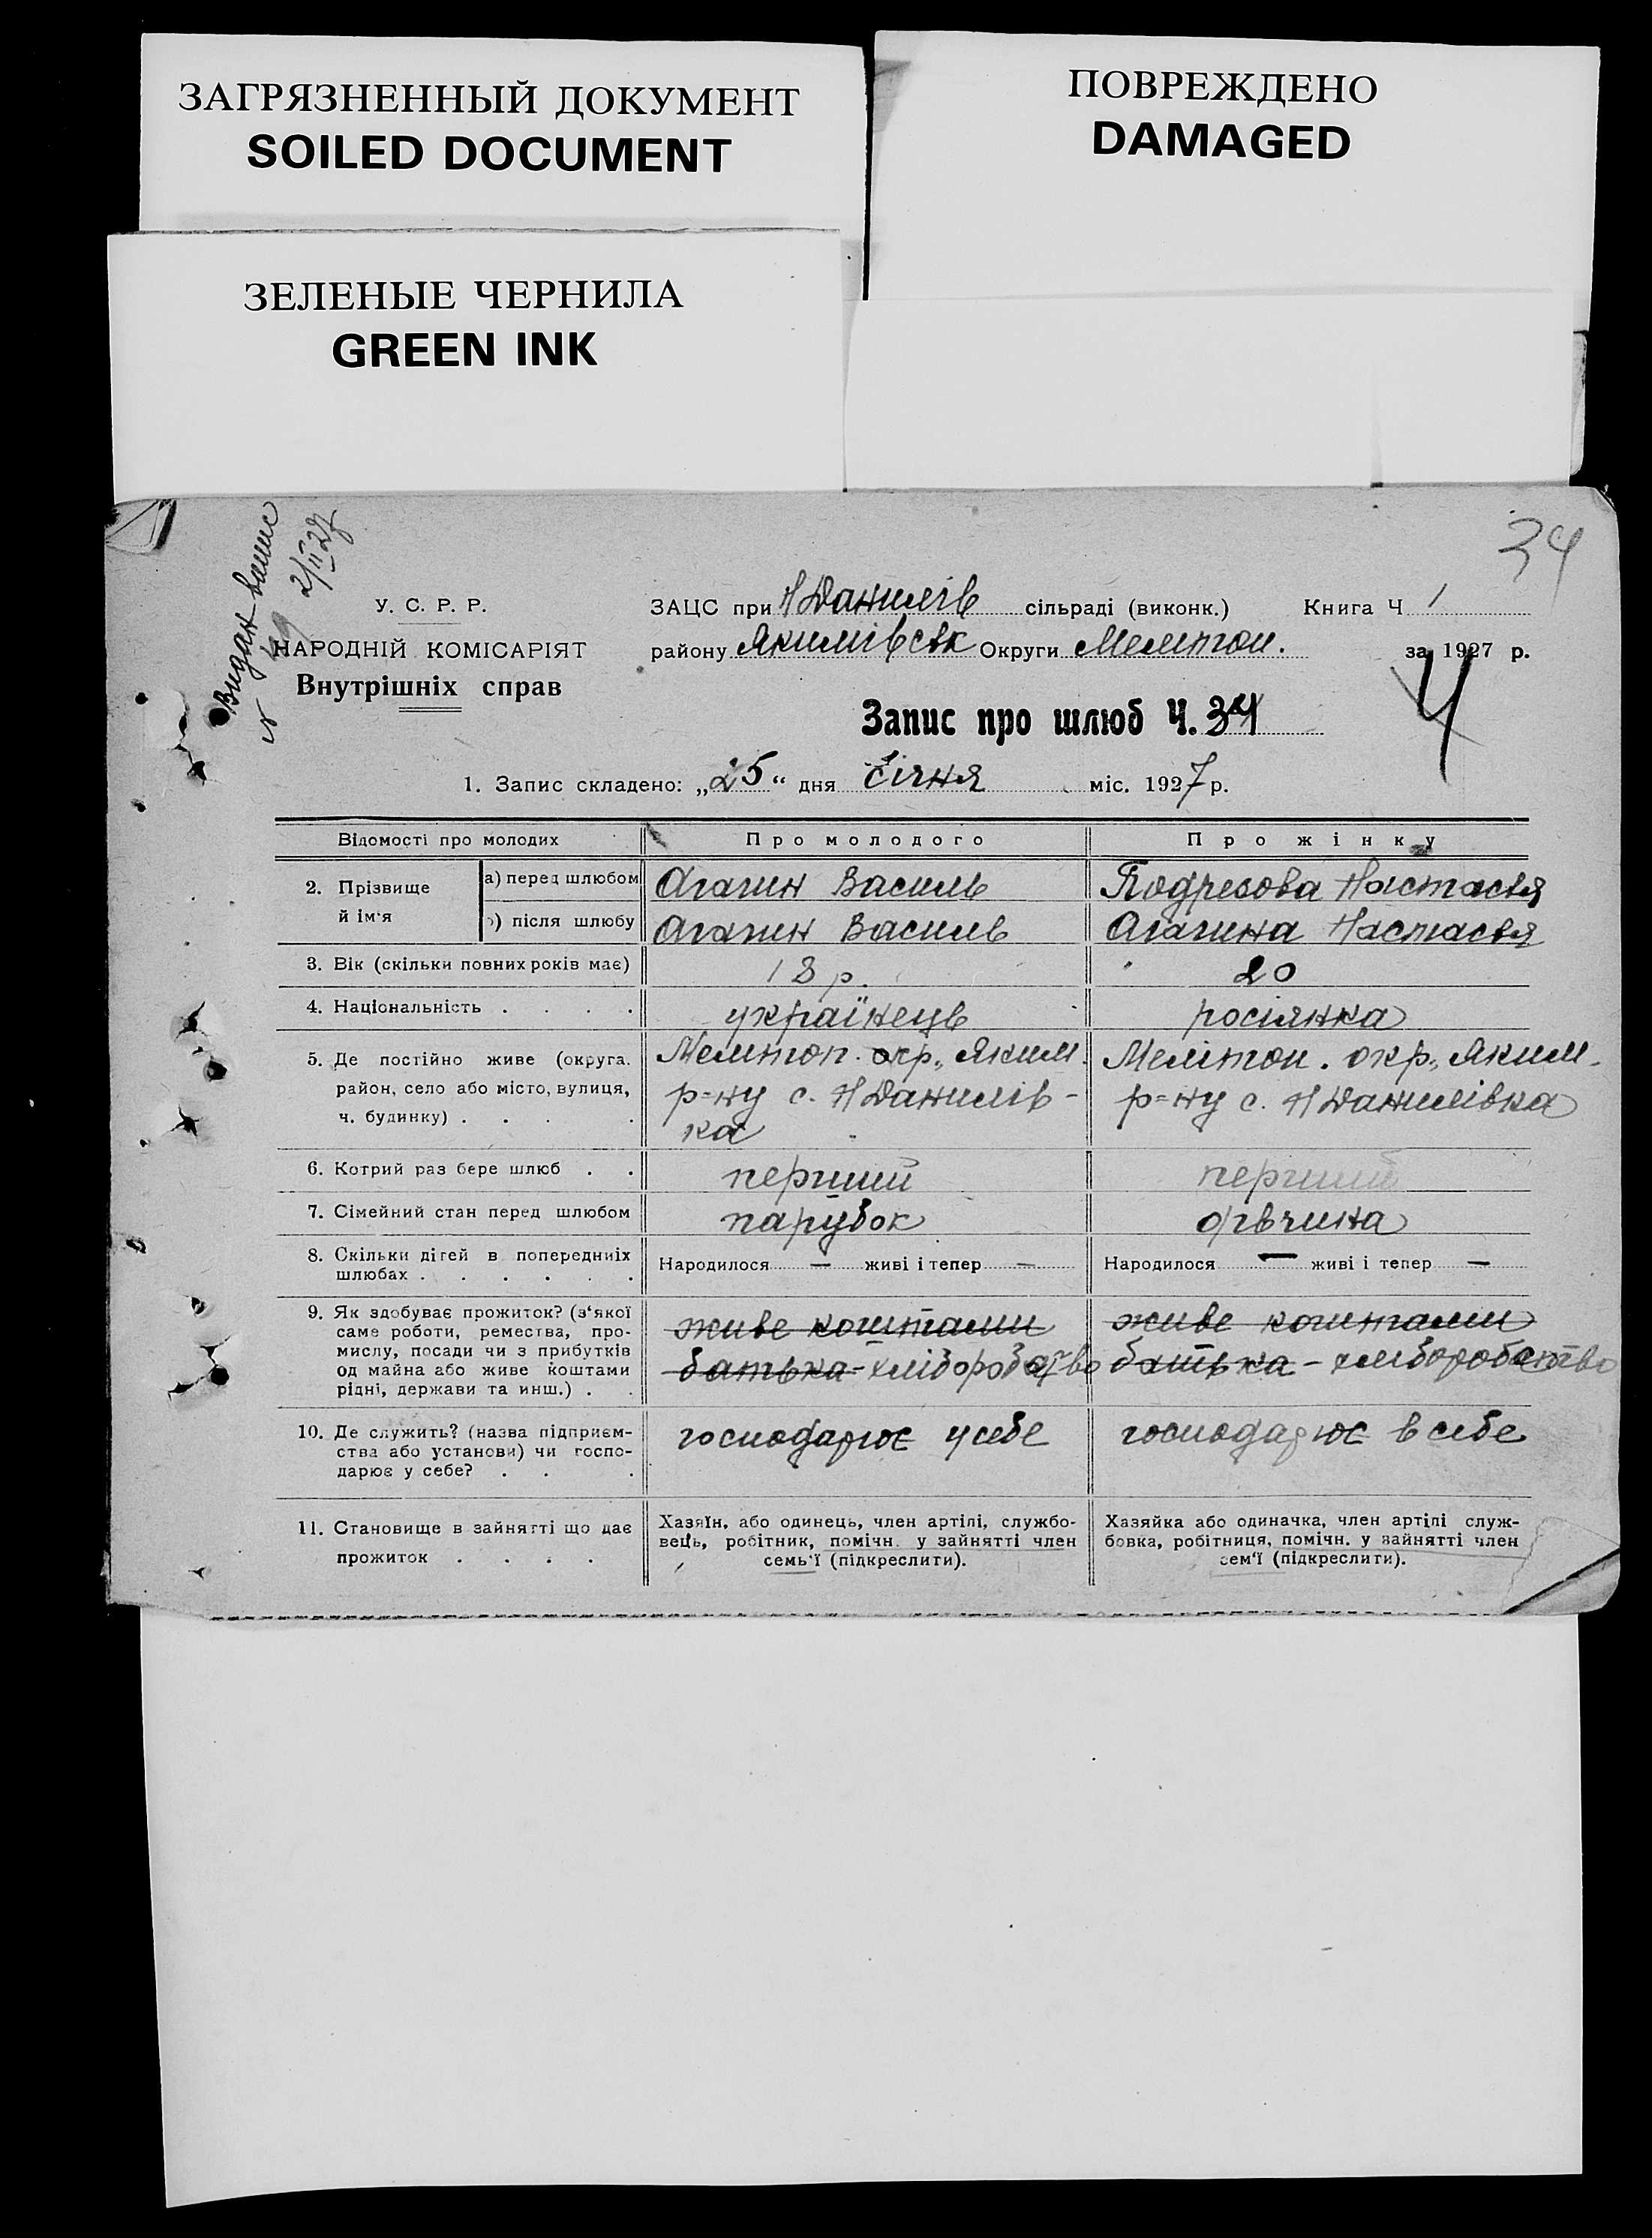 ЗАГРЯЗНЕННЫЙ ДОКУМЕНТ
SOILED DOCUMENT
ПОВРЕЖДЕНО
DAMAGED
ЗЕЛЕНЫЕ ЧЕРНИЛА
GREEN INK
34
Видан
2/II 27
У. С. Р. Р.
НАРОДНІЙ КОМІСАРІЯТ
Внутрішніх справ
ЗАЦС при Н Данилів сільраді (виконк.) Книга Ч 1
району Якимівськ Округи Мелітоп. за 1927 р.
Запис про шлюб Ч. 34
4
1. Запис складено: „25“ дня січня міс. 1927 р.
Відомості про молодих Про молодого Про жінку
2. Прізвище й ім'я а) перед шлюбом Агагин Василь Подрезова Настасья
б) після шлюбу Агагин Василь Агагина Настасья
3. Вік (скільки повних років має) 18 р. 20
4. Національність . . . . українець росіянка
5. Де постійно живе (округа. Мелітоп. окр., Яким. Мелітоп. окр., Яким.
район, село або місто, вулиця, р=ну с. Н Данилів- р=ну с. Н Данилівка
ч. будинку) . . . . ка
6. Котрий раз бере шлюб . . перший перший
7. Сімейний стан перед шлюбом парубок дівчина
8. Скільки дітей в попередниіх Народилося — живі і тепер — Народилося — живі і тепер —
шлюбах . . . . . .
9. Як здобуває прожиток? (з'якої живе коштами живе коштами
саме роботи, ремества, про-
мислу, посади чи з прибутків батька - хліборобство батька - хліборобство
од майна або живе коштами
рідні, держави та инш.) . .
10. Де служить? (назва підприєм- господарює у себе господарює в себе
ства або установи) чи госпо-
дарює у себе? . . .
11. Становище в зайнятті що дає Хазяїн, або одинець, член артілі, службо- Хазяйка або одиначка, член артілі служ-
вець, робітник, помічн. у зайнятті член бовка, робітниця, помічн. у зайнятті член
прожиток . . . . семь'ї (підкреслити). сем'ї (підкреслити).